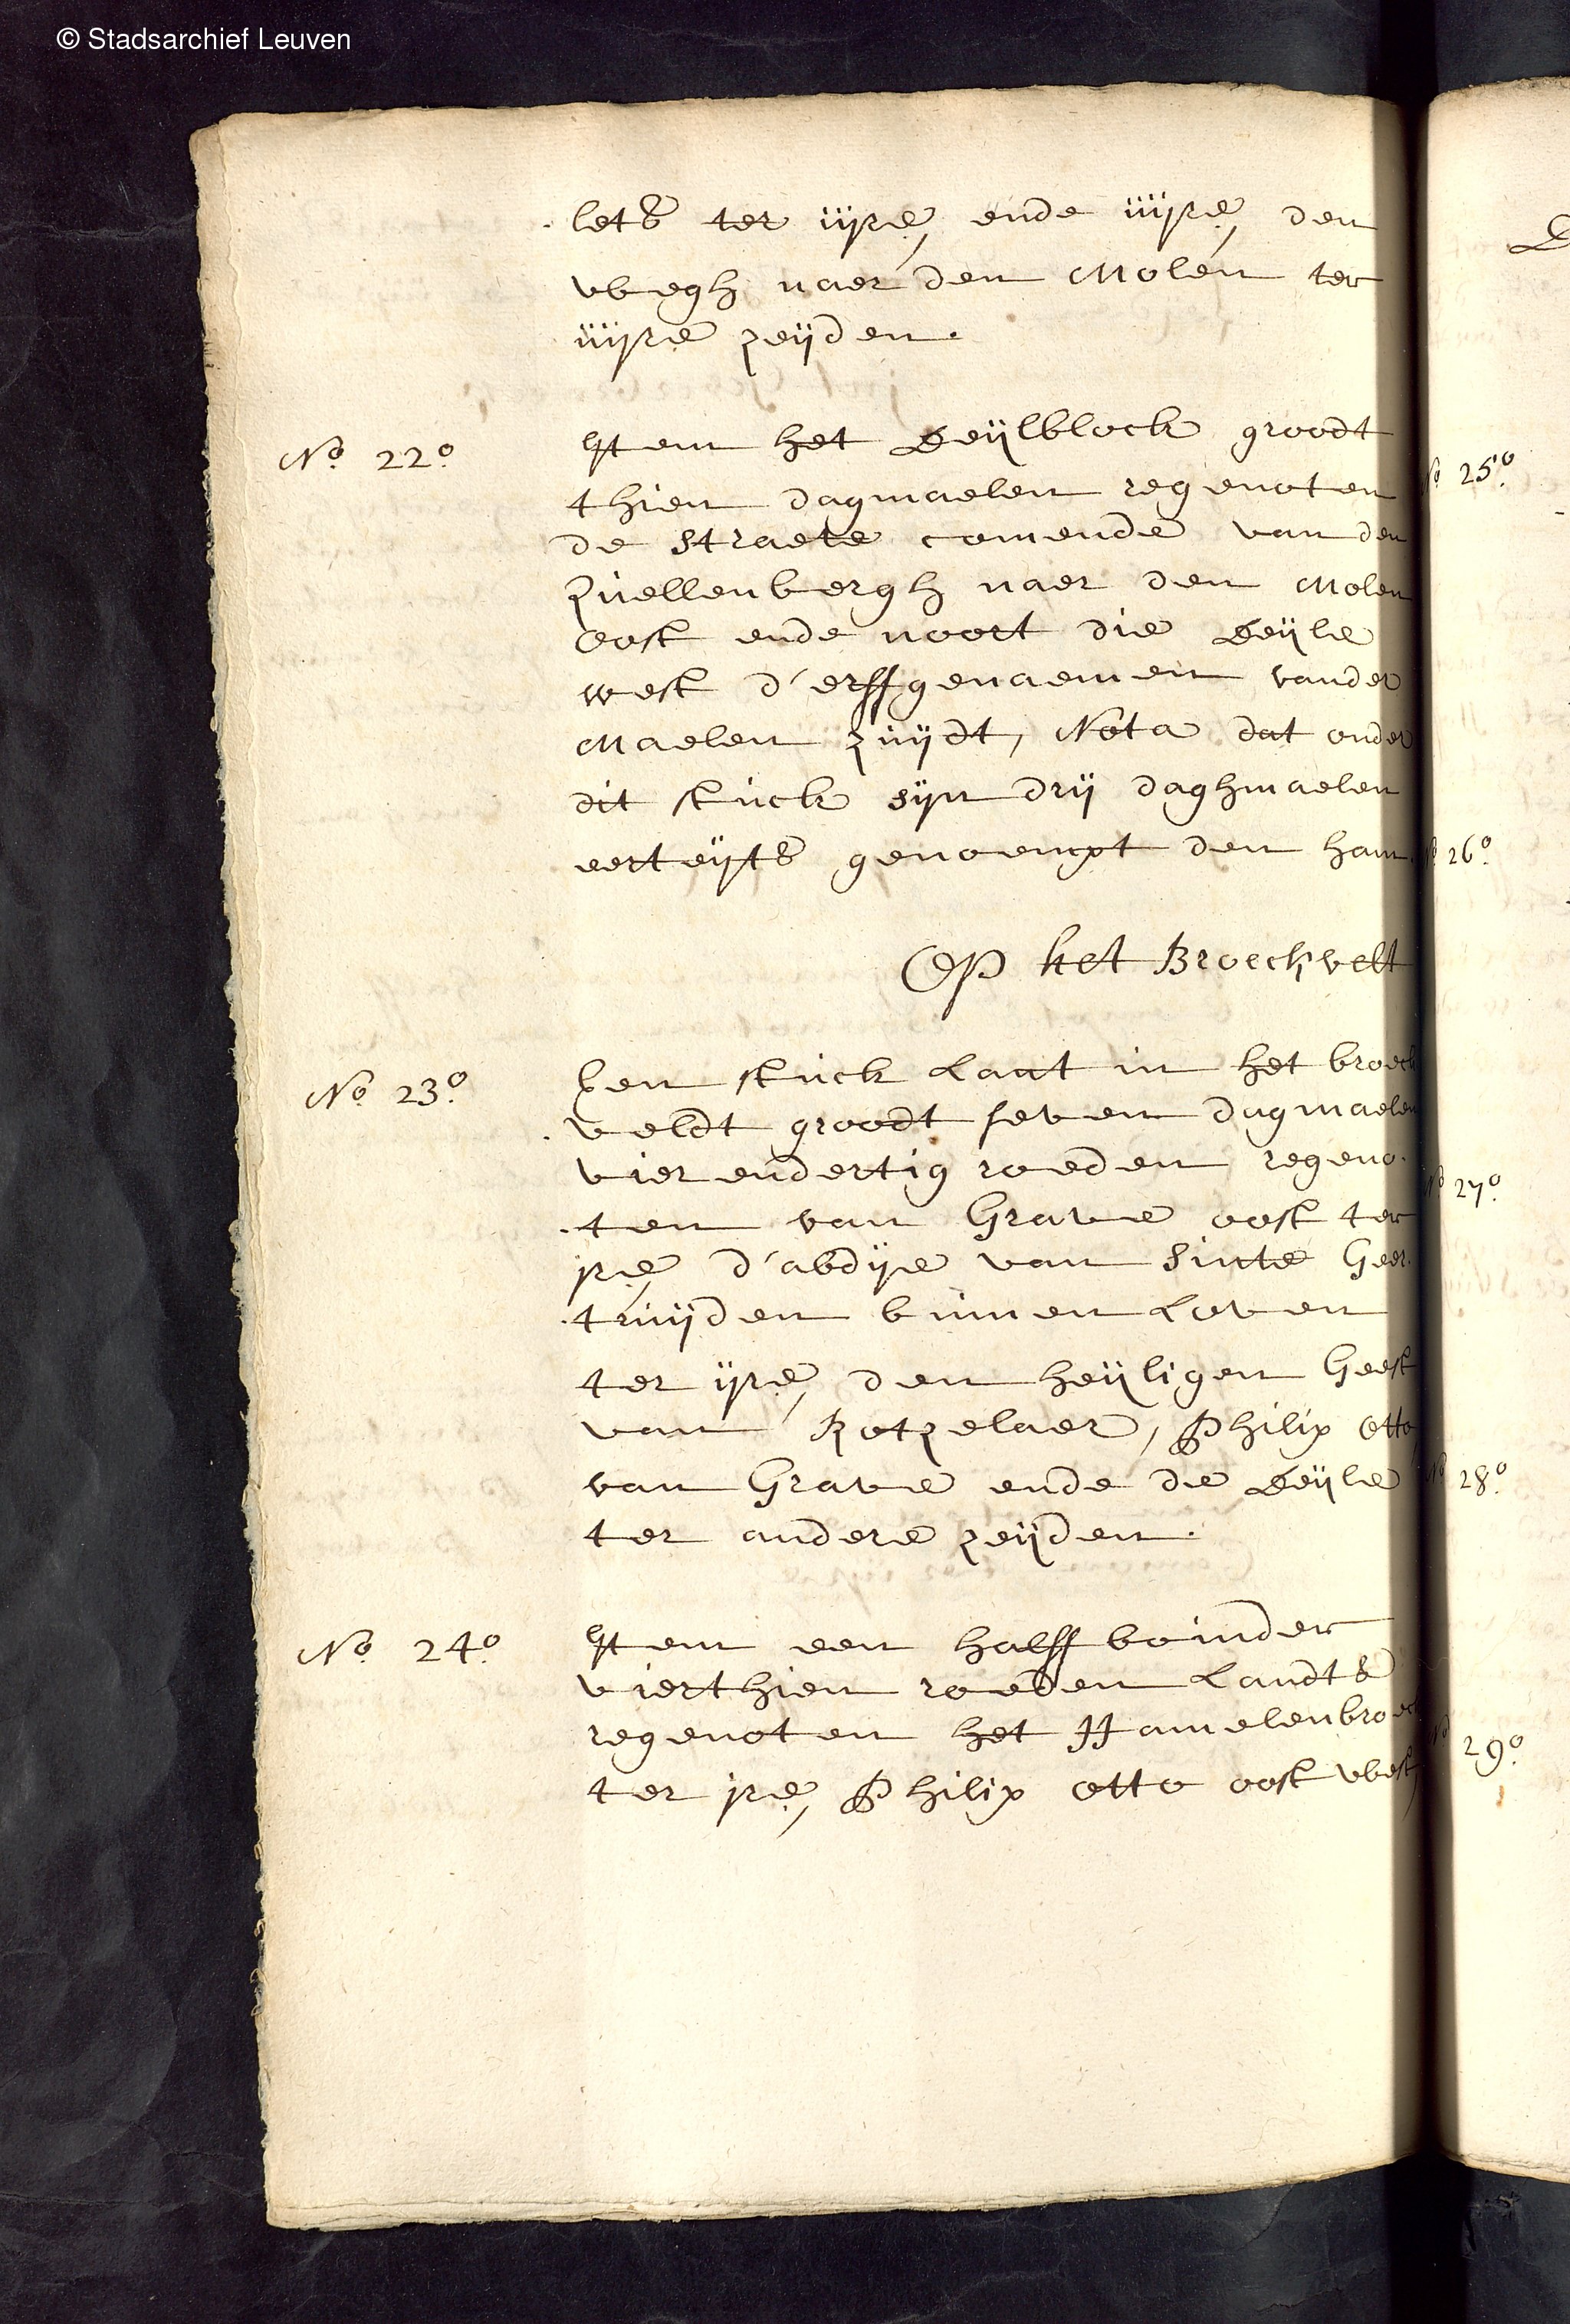 © Stadsarchief Leuven
lets ter ijre, ende iijre, den
wegh naer den Molen ter
iiijre zeijden.
No. 22o.
Item het Deijlblock groodt
thien dagmaelen regenoten
de straete comende van den
Zuellenbergh naer den Molen
Oost ende noort die Deijle
west d'erffgenaemen vander
Maelen zuijdt, Nota dat onder
dit stuck sijn drij daghmaelen
eertijts genoempt den ham
Op het Broeckvelt
No. 23o.
Een stuck Lant in het broeck
veldt groodt seven dagmaelen
vierendertig roeden regeno
ten van Grave oost ter
jre, d'abdije van Sinte Geer
truijden binnen Loven
ter ijre, den heijligen Geest
van Rotzelaer, Philip Otto
van Grave ende de Deijle
ter andere zeijden.
No. 24o.
Item een halff boinder
vierthien roeden Landts
regenoten het Hamelenbroeck
ter jre, Philip Otto oost west,
No 25o.
26o.
No 27o.
No 28o.
No 29o.